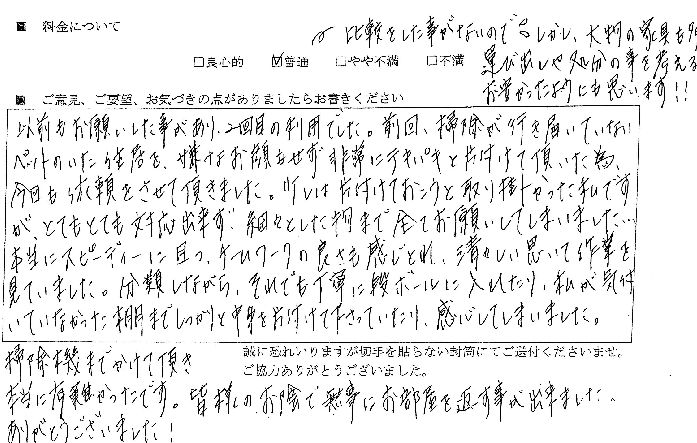 料金について
比較をした事がないので。しかし、大物の家具も
□良心的 ☑普通 □やや不満 □不満
運び出しや処分の事を考える
お安かったようにも思います!!
ご意見、ご要望、お気づきの点がありましたらお書きください
以前もお願いした事があり、2回目の利用でした。前回、掃除が行き届いていない
ペットのいた住居を、嫌なお顔もせず非常にテキパキと片付けて頂いた為、
今回も依頼をさせて頂きました。少しは片付けておこうと取り掛かった私です
が、とてもとても対応出来ず、細々とした物まで全てお願いしてしまいました…
本当にスピーディーに且つ、チームワークの良さも感じとれ、清々しい思いで作業を
見ていました。分類しながら、それでも丁寧に段ボールに入れたり、私が気付
いていなかった棚までしっかりと中身を片付けて下さっていたり、感心してしまいました。
掃除機までかけて頂き
誠に恐れいりますが切手を貼らない封筒にてご送付くださいませ。
ご協力ありがとうございました。
本当に有難かったです。皆様のお陰で無事にお部屋を返す事が出来ました。
ありがとうございました!